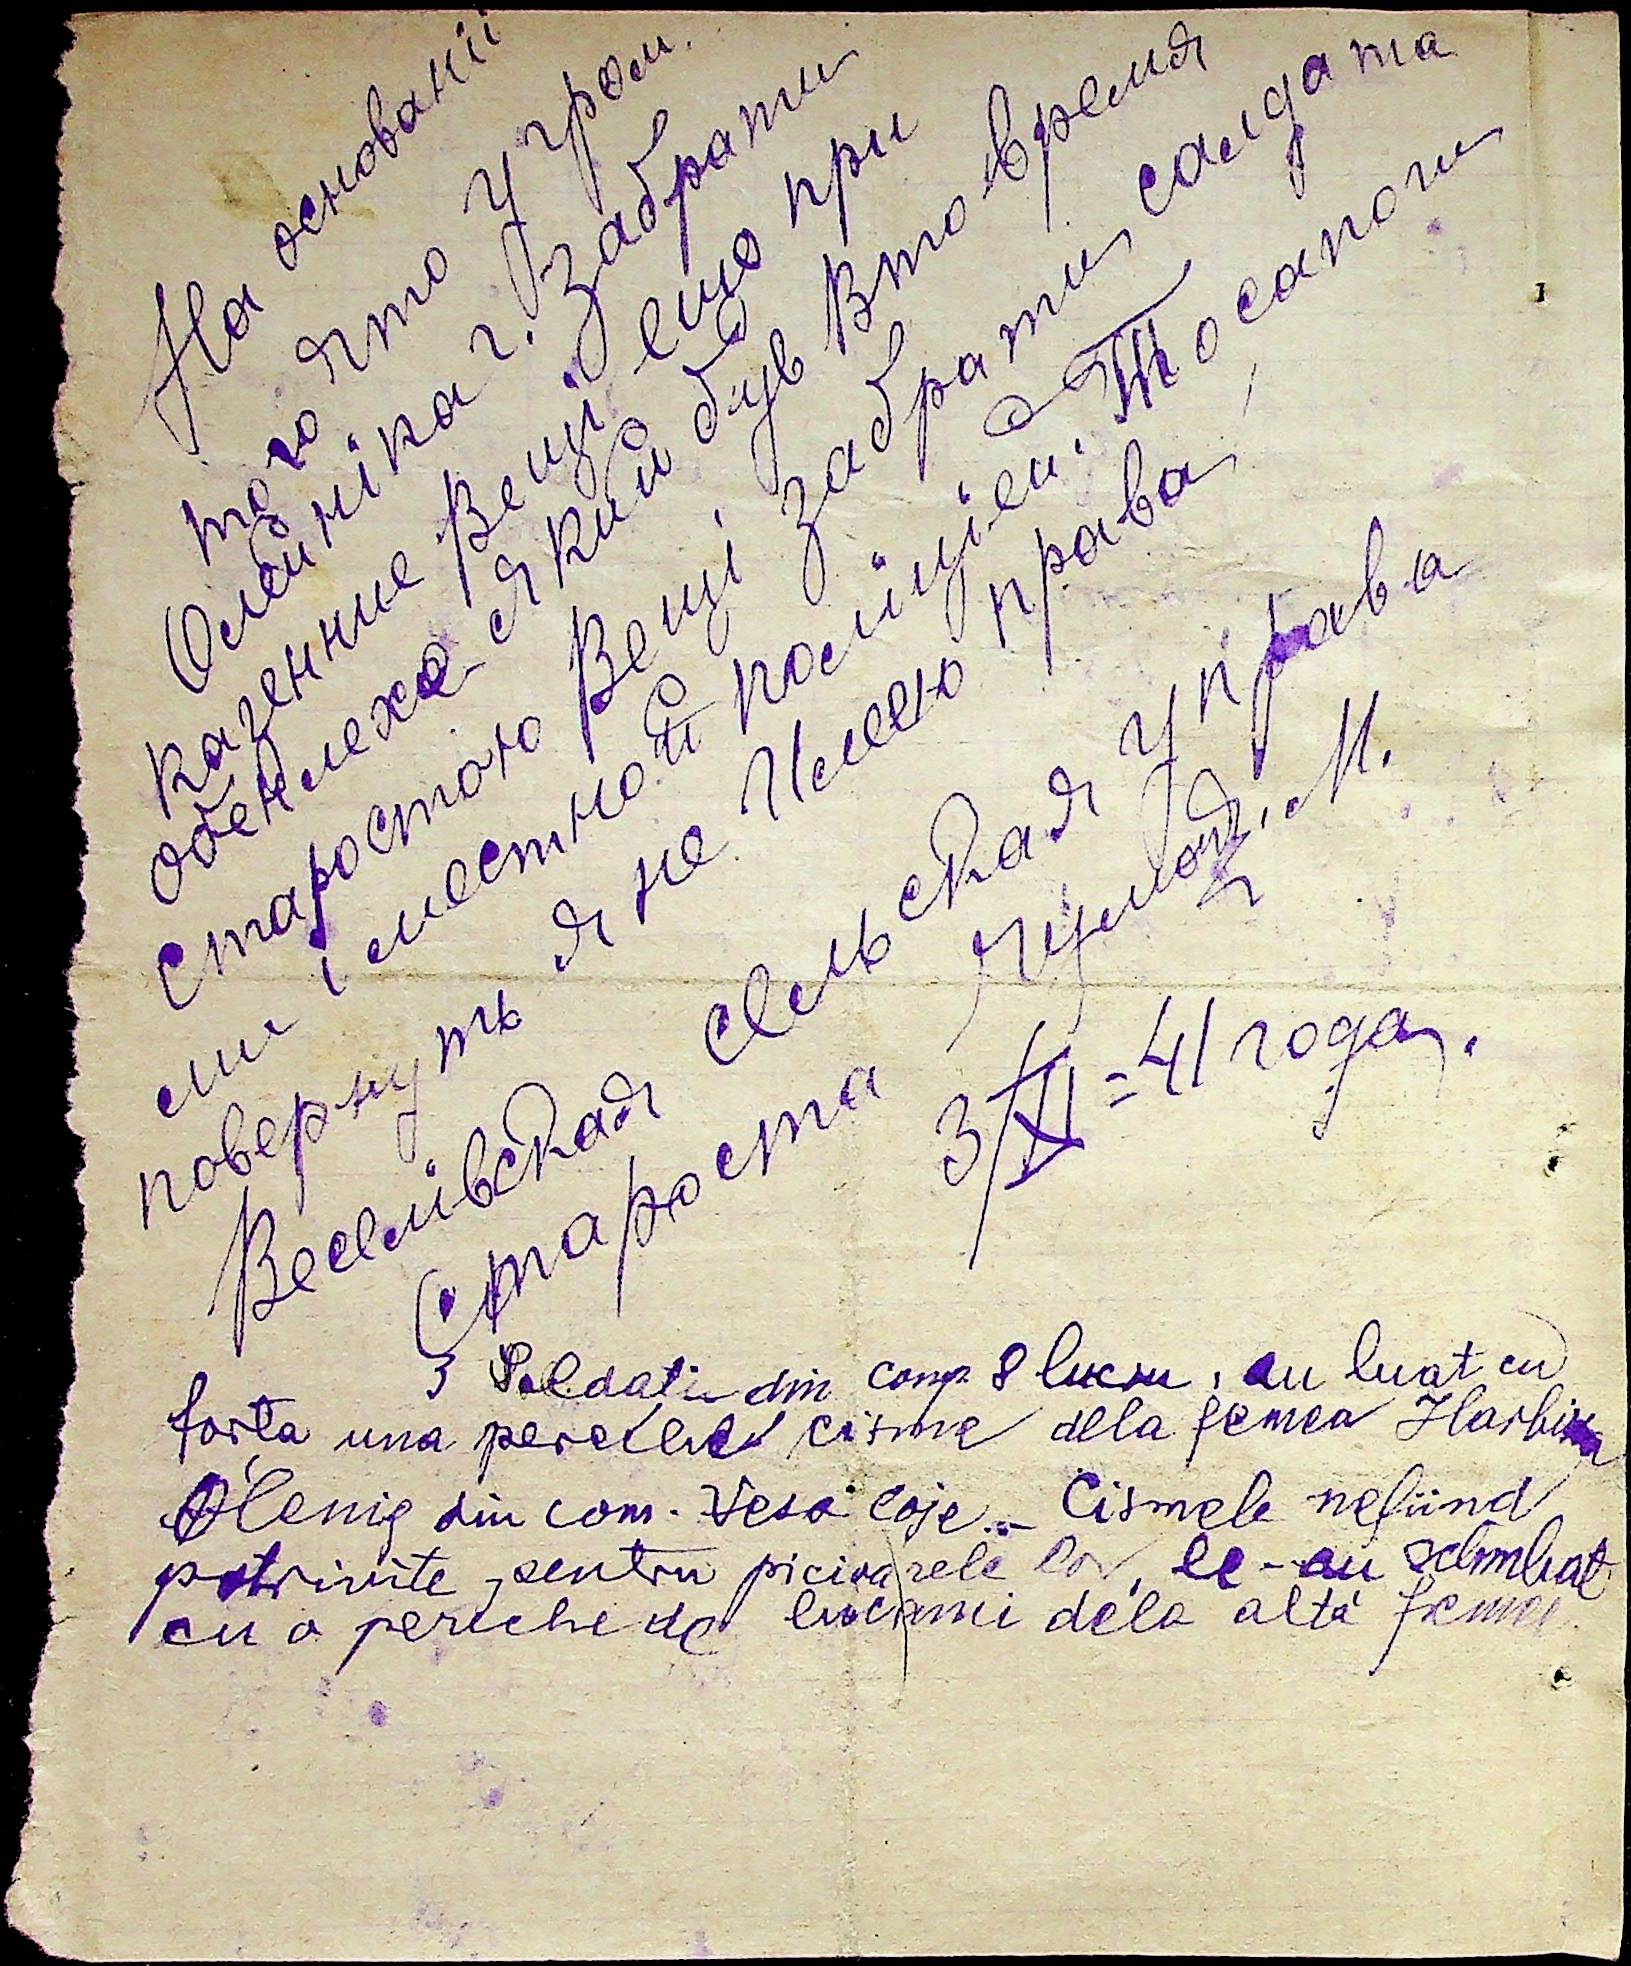 На основанії
того што у гром.
Олейніка г. забрати
казенние Вещі ещо при
обенлеха який був Вто время
старостою Вещі забрати салдата
ми і местной поліціей. То сапоги
повернуть я не Имею права
Веселівская сельская управа
Староста М.
3/XI = 41 года.
3 Soldati din comp. 8 lucru, au luat cu
forta una pereche cisme dela femea Harbina
Olenig din com. Vesa coje.. Cismele nefiind
potrivite pentru picioarele lor, le-au schimbat
cu o pereche de bocanci dela altă femee